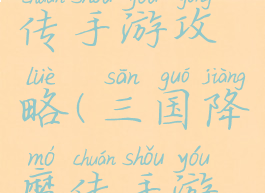 chuán shǒu yóu gōng
传手游攻
lüè sān guó jiàng
略(三国降
mó chuán shǒu yóu
魔传手游